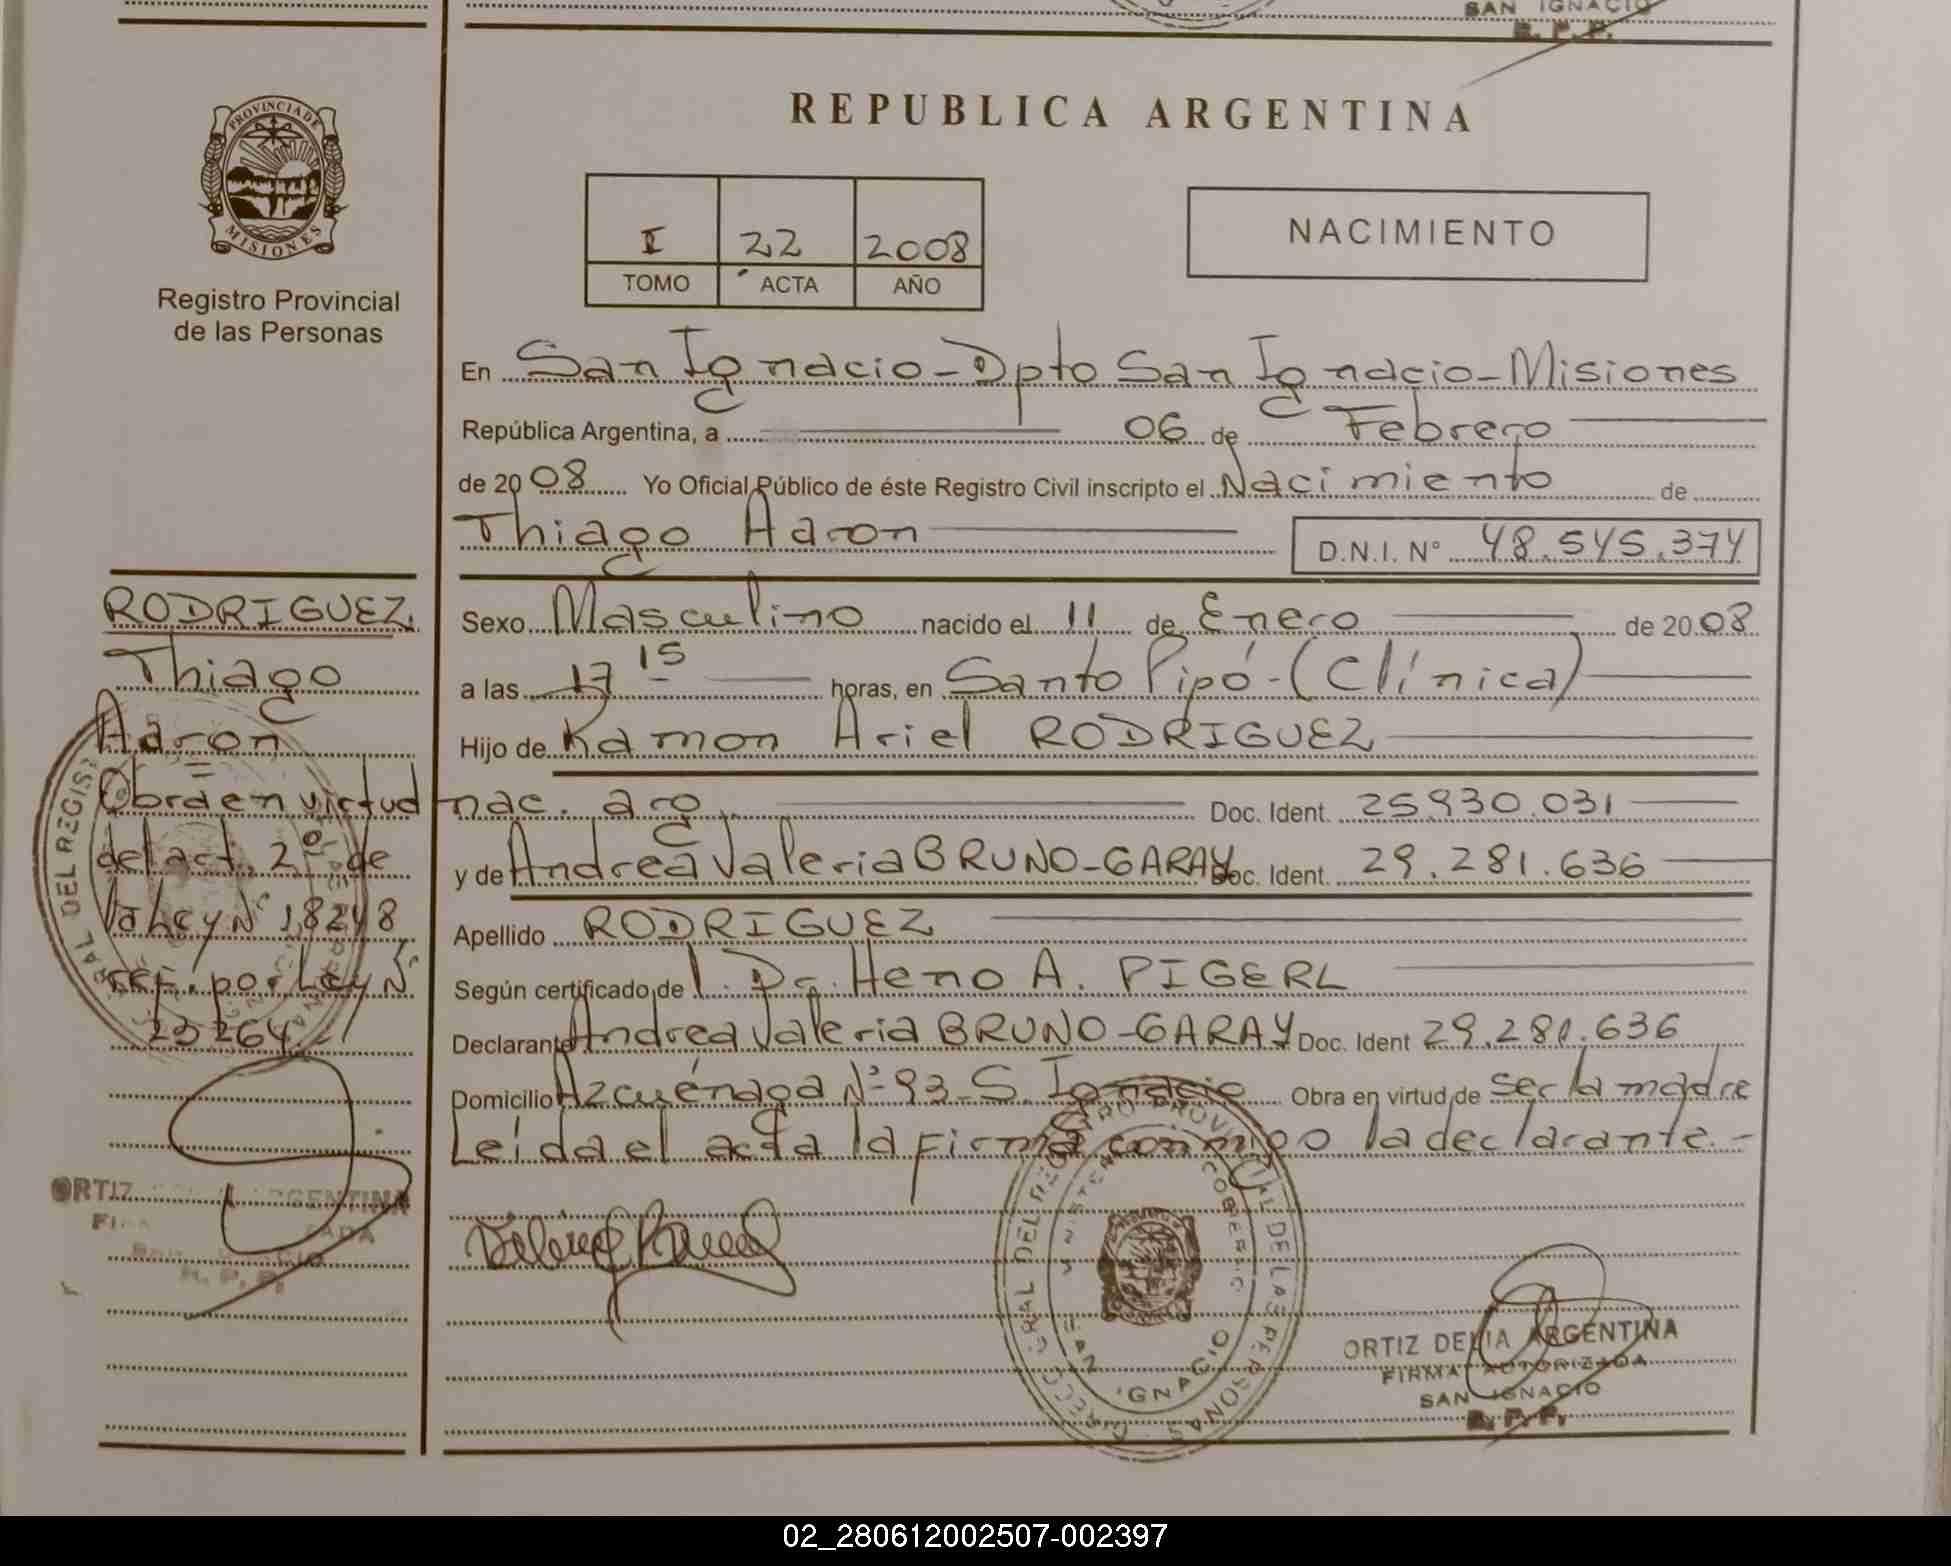 SAN IGNACIO
R. P. P.
PROVINCIA DE
MISIONES
Registro Provincial
de las Personas
REPUBLICA ARGENTINA
I 22 2008
TOMO ACTA AÑO
NACIMIENTO
En San Ignacio - Dpto San Ignacio - Misiones
República Argentina, a 06 de Febrero
de 2008 Yo Oficial Público de éste Registro Civil inscripto el Nacimiento de
Thiago Aaron D.N.I. N° 48.545.374
Sexo Masculino nacido el 11 de Enero de 2008
a las 17 15 horas, en Santo Pipó - (Clínica)
Hijo de Ramon Ariel RODRIGUEZ
nac. arg. Doc. Ident. 25.930.031
y de Andrea Valeria BRUNO-GARAY Doc. Ident. 29.281.636
Apellido RODRIGUEZ
Según certificado de l. Dr. Heno A. PIGERL
Declarante Andrea Valeria BRUNO-GARAY Doc. Ident 29.281.636
Domicilio Azcuénaga N° 93 - S. Ignacio Obra en virtud de ser la madre
Leída el acta la firma conmigo la declarante.-
RODRIGUEZ
Thiago
Aaron
=
Obra en virtud
del act. 2° de
la Ley N° 18248
ref. por Ley N°
23264.-
ORTIZ ARGENTINA
R. P. P.
ORTIZ DELIA ARGENTINA
FIRMA AUTORIZADA
SAN IGNACIO
R. P. P.
02_280612002507-002397